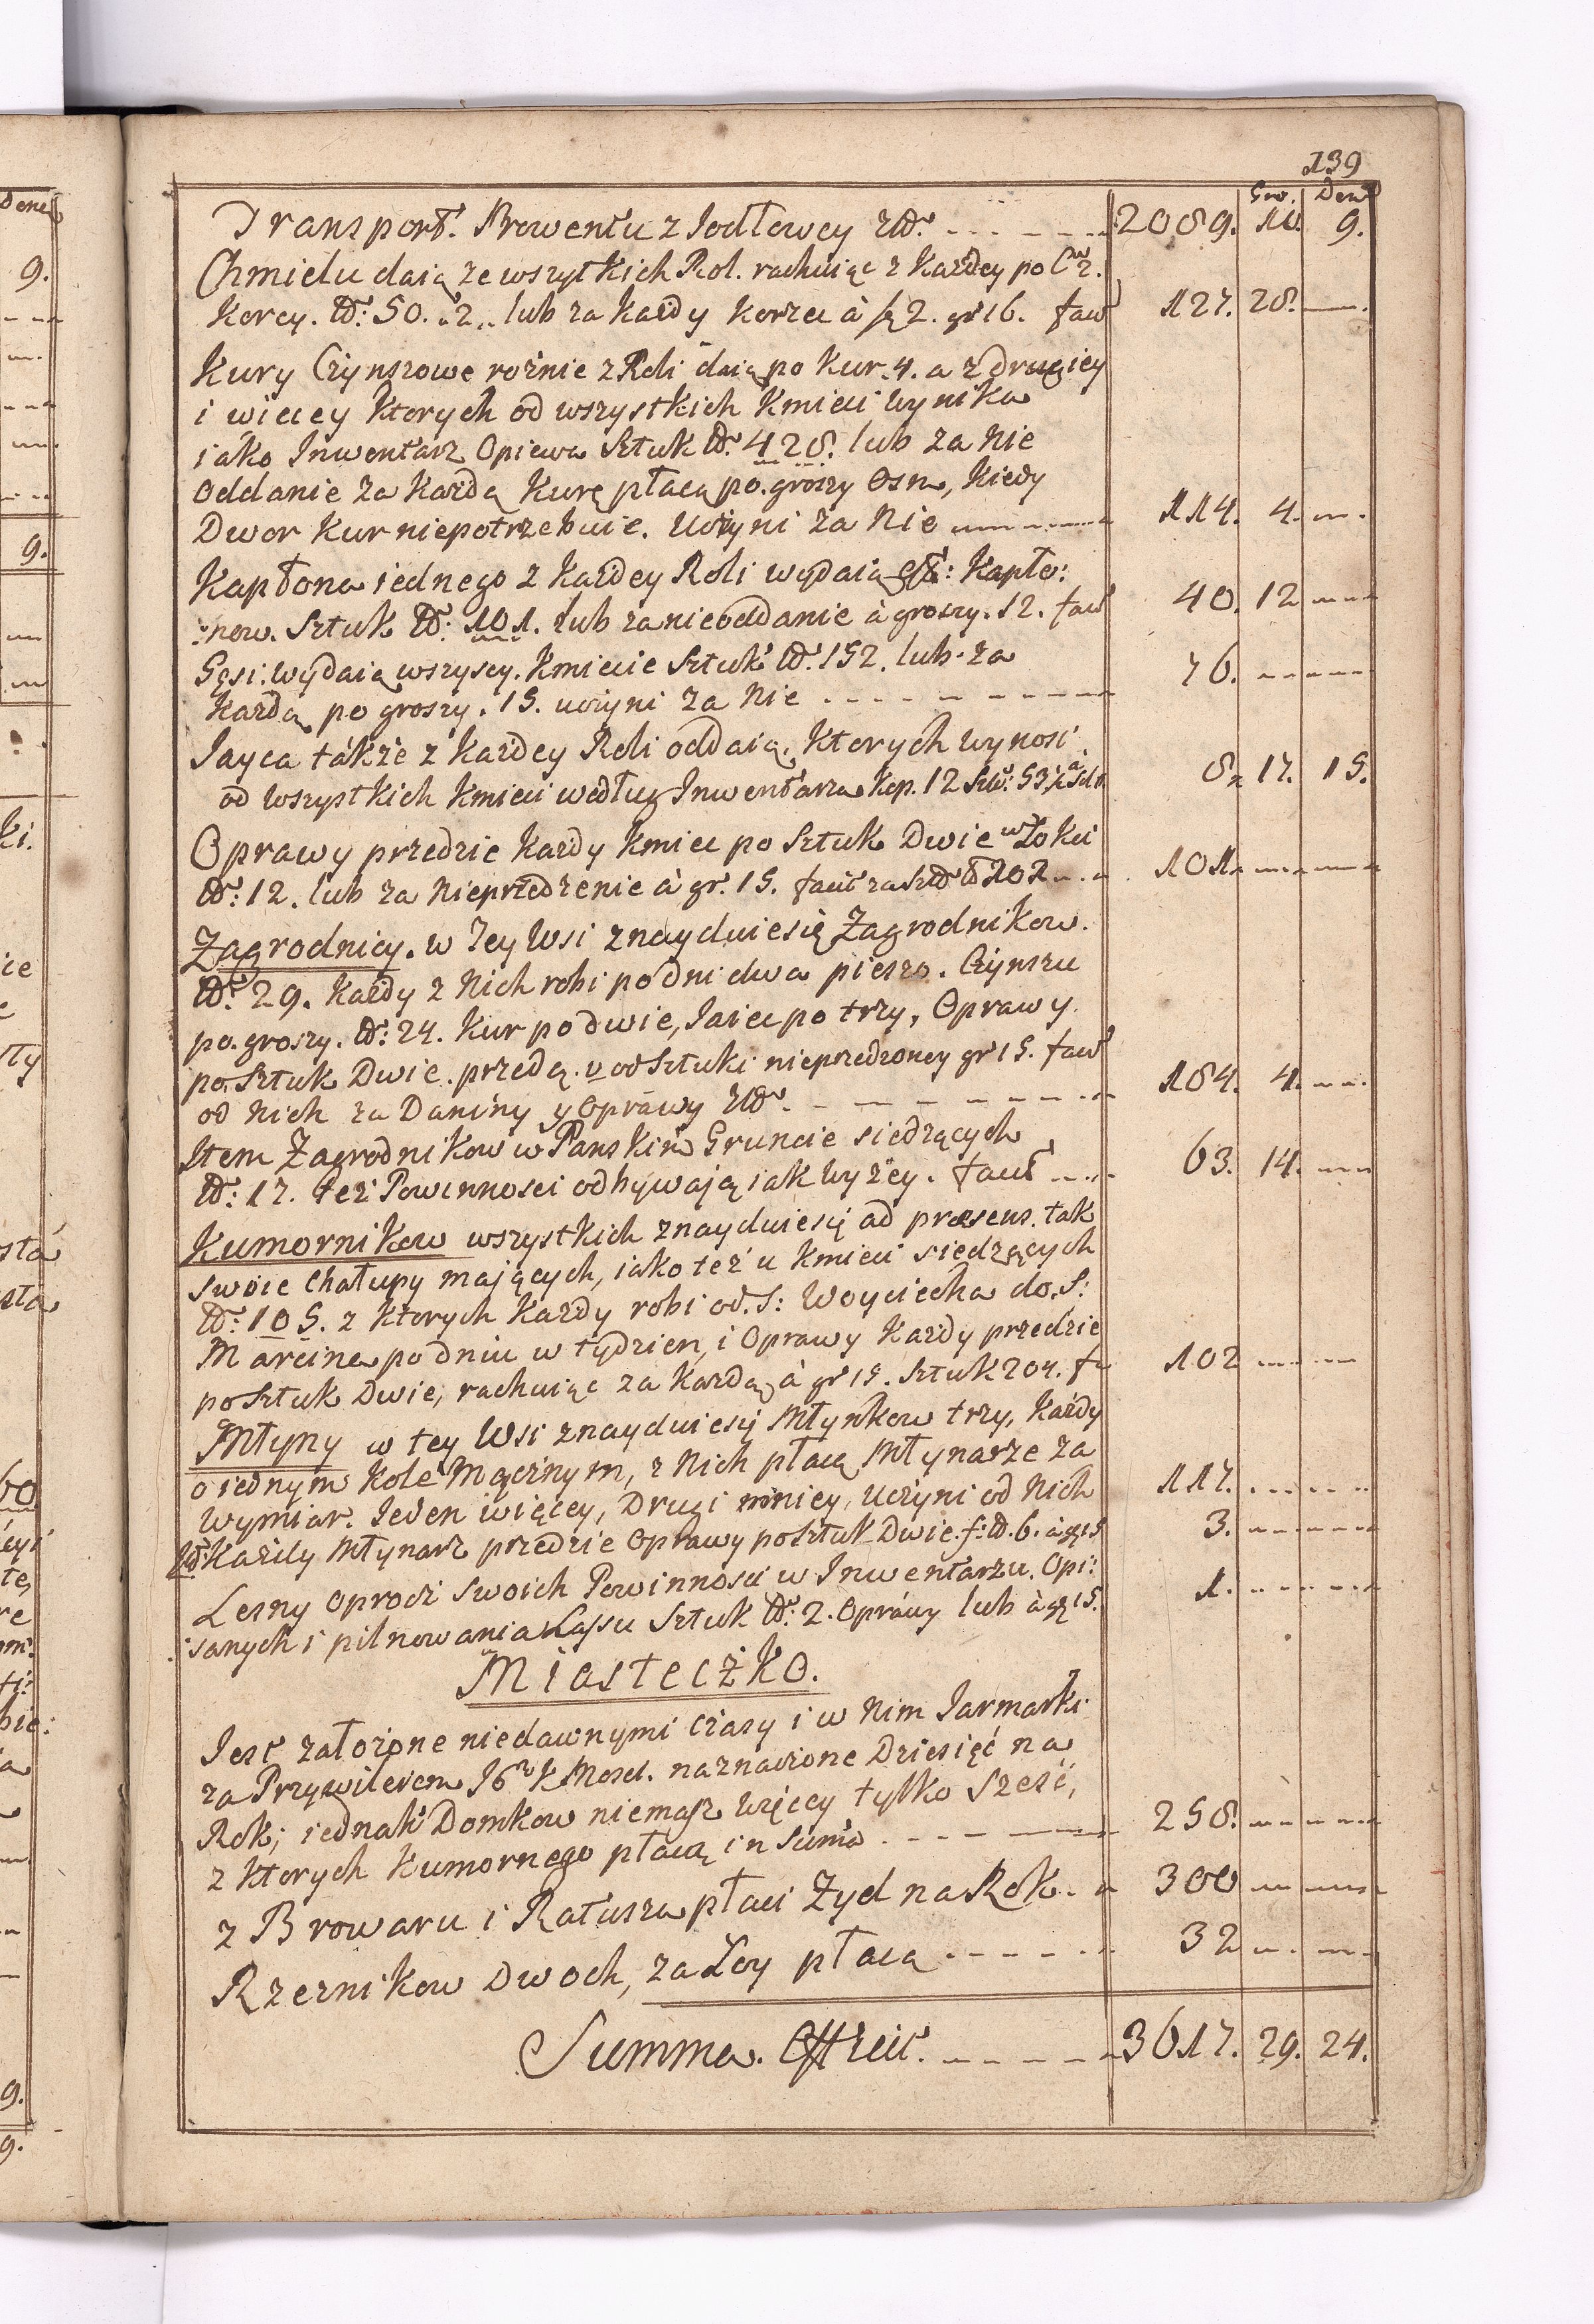 139
Gro. Den.
Transport. Prowentu z Jodłowey Nro. 2089. 10. 9.
Chmielu daią ze wszytkich Rol. rachuiąc z Każdey po Cwr.
Korcy. No: 50. 2. lub za Każdy Korzec à fl 2. gr 16. facit 127. 28.
Kury Czynszowe rożnie z Roli daią po Kur. 4. a z drugiey
i wiecey Ktorych od wszystkich Kmieci wynika
iako Inwentarz Opiewa Sztuk No. 428. lub za Nie
Oddanie za Każdą Kurę płacą po. groszy Osm, Kiedy
Dwor Kur niepotrzebuie. Uczyni za Nie 114. 4.
Kapłona iednego z Każdey Roli wydaią Kapło:
:now. Sztuk No: 101. lub za nieoddanie à groszy. 12. facit 40. 12
Gęsi: wydaią wszyscy. Kmiecie Sztuk No: 152. lub za
Każdą po groszy. 15. uczyni za Nie 76.
Jayca także z Każdey Roli oddaią, Ktorych wynosi
od wszystkich Kmieci według Inwentarza Kop. 12 Szt: 53 8. 17. 15.
Oprawy przedzie Każdy Kmiec po Sztuk Dwie w Łokci
No: 12. lub za Nieprzedzenie à gr. 15. facit za Szt No 202 101.
Zagrodnicy. w Tey Wsi znayduiesię Zagrodnikow.
No: 29. Każdy z Nich robi po dni dwa pieszo. Czynszu
po. groszy. No: 24. Kur po dwie, Jaiec po trzy, Oprawy
po Sztuk Dwie. przedą. v od Sztuki nieprzedzoney gr 15. facit
od Nich za Daniny y Oprawy No. 184. 4.
Item Zagrodnikow w Panskim Gruncie siedzących
No: 17. też Powinnosci odbywaią iak wyżey. facit 63. 14.
Kumornikow wszystkich znayduiesię ad præsens. tak
swoie Chałupy maiących, iako też u Kmieci siedzących
No: 105. z Ktorych Każdy robi od. S: Woyciecha do. S:
Marcina po dniu w tydzien, i Oprawy Każdy przedzie
po Sztuk Dwie, rachuiąc za Każdą à gr 15. Sztuk 204. fa 102
Młyny w tey Wsi znayduiesię Młynkow trzy, Każdy
o iednym Kole Mącznym, z Nich płacą Młynarze za
Wymiar. Jeden więcey, Drugi mniey, Uczyni od Nich 117.
Każdy Młynarz przedzie Oprawy po Sztuk Dwie. f: No. 6. à gr 15 3.
Lesny oprocz swoich Powinnosci w Inwentarzu. Opi:
:sanych i pilnowania Lassu Sztuk No: 2. Oprawy lub à gr 15. 1.
Miasteczko.
Jest założone niedawnymi Czasy i w Nim Jarmarki
za Przywileiem J K Mosci. naznaczone Dziesięć na
Rok; iednak Domkow niemasz więcy tylko Sześć,
z Ktorych Kumornego płacą in Summa 258.
z Browaru i Ratusza płaci Żyd na Rok. 300
Rzeznikow Dwoch, za Łoy płacą 32
Summa. Effficit. 3617. 29. 24.